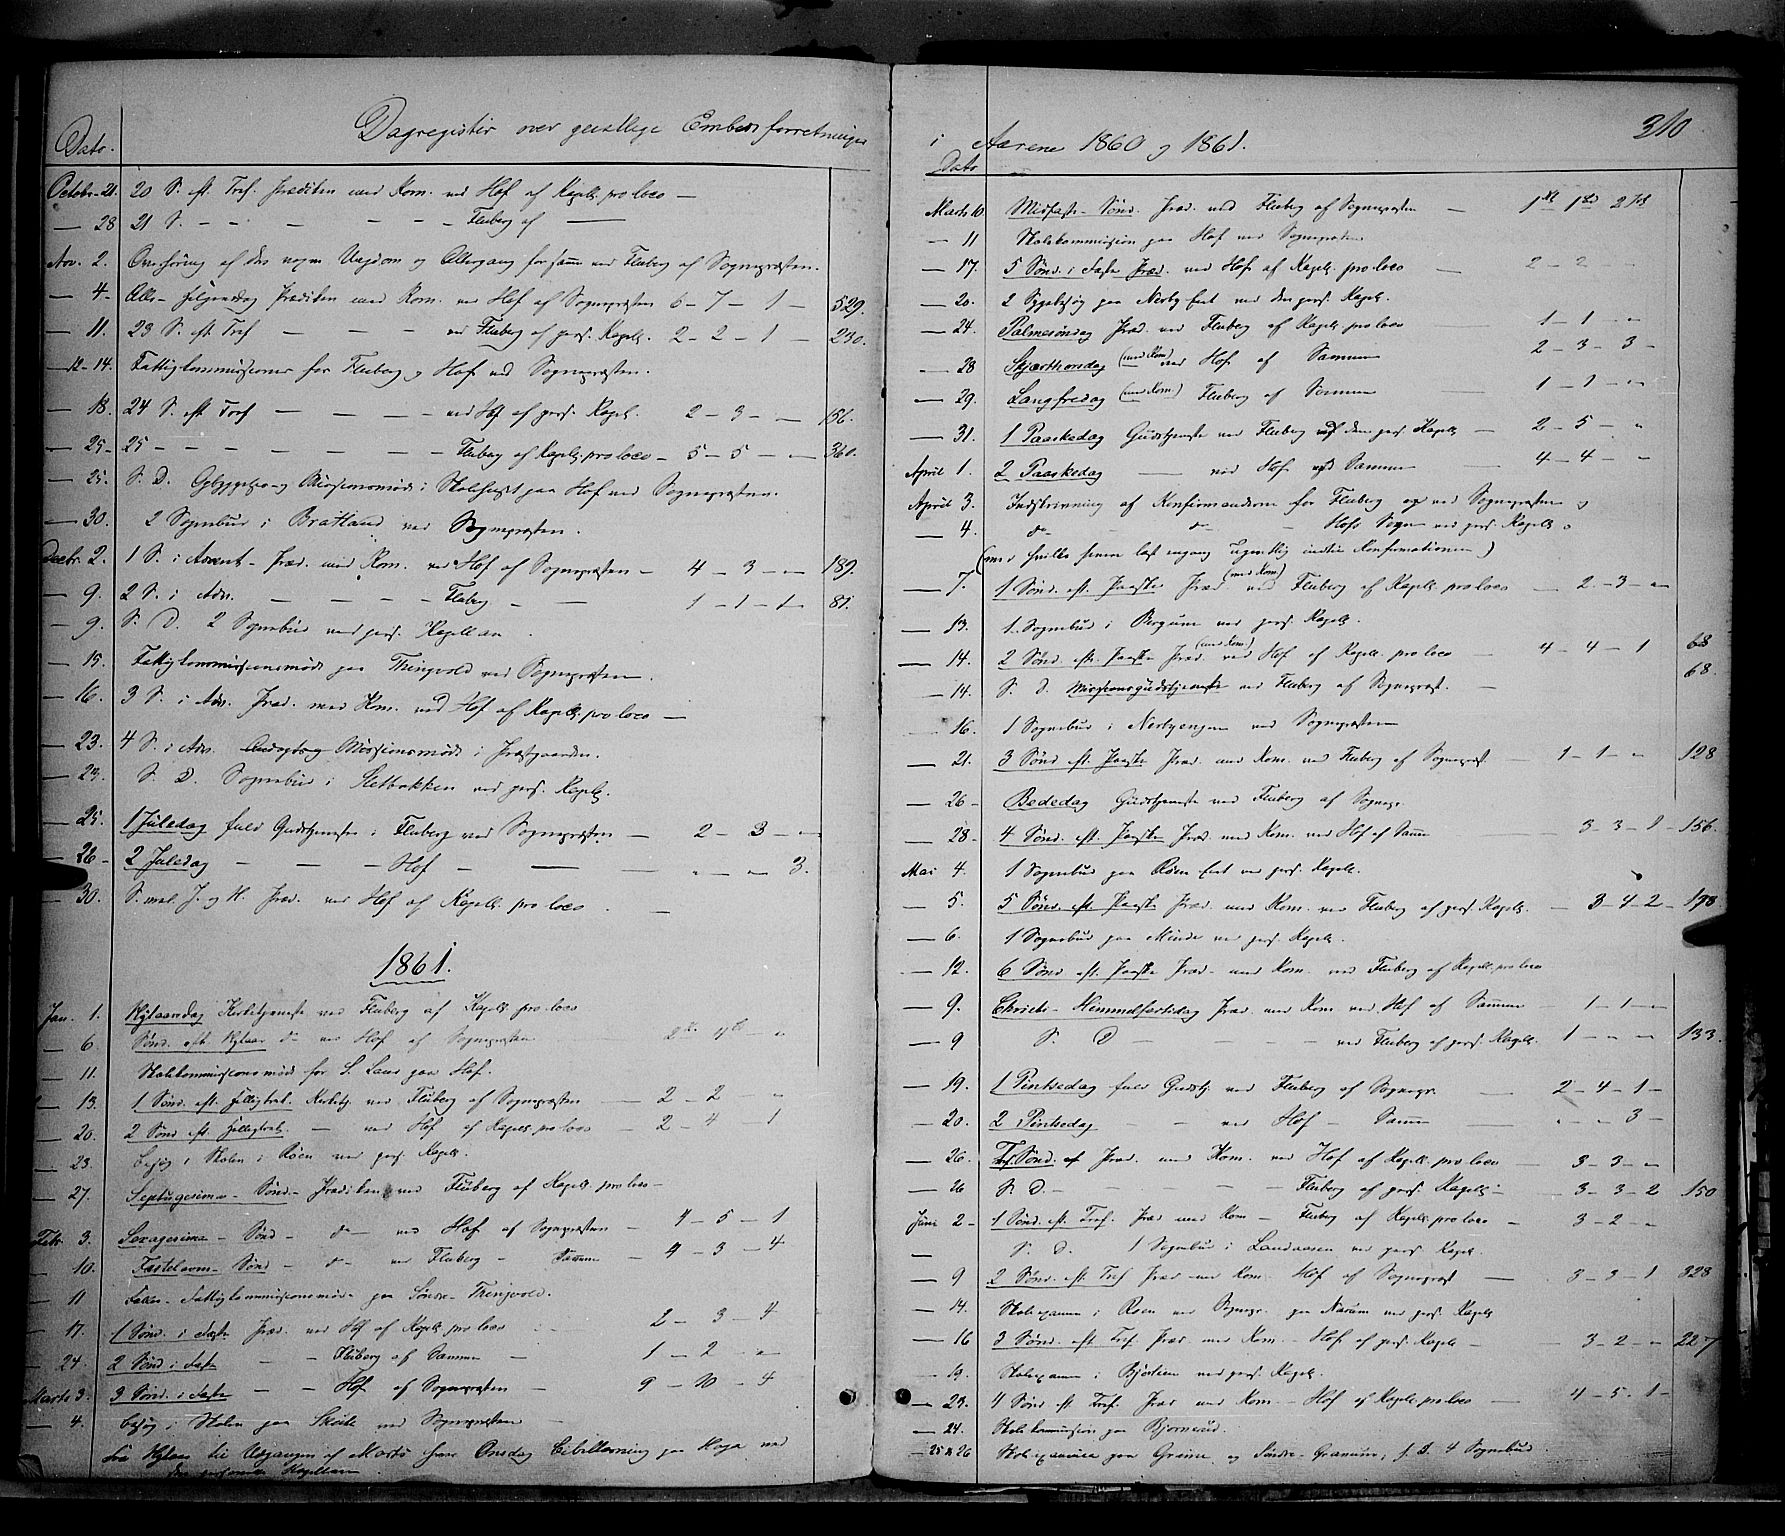 Dagregister over geistlige Embedsforretninger
Dato.
Octobr. 21. 20 S. eft. Tref. Prædiken med Kom. ved Hof af Kapell. pro loco —
— 28 21 S. — — — — — Fluberg af —
Nov. 2. Overhøring af den Ungdom og Altergang for samme ved Fluberg af Sognepræsten.
— 4 — Alle-Helgensdag Prædiken med Kom. ved Hof af Sognepræsten 6 — 7 — 1 — 529.
— 11. 23 S. eft. Tref — — — ved Fluberg af pers. Kapell. 2 — 2 — 1 — 230.
— 12-14. Fattigkommissioner for Fluberg og Hof ved Sognepræsten.
— 18. 24 S. eft. Tref — — — — ved Hof af pers. Kapel. 2 — 3 — — 156.
— 25 — 25 — — — — — Fluberg af Kapell. pro loco — 5 — 5 — — 360.
— 25. S. D. Missionsmøde i Skolehuset paa Hof ved Sognepræsten.
— 30. 2 Sognebud i Bratland ved Sognepræsten.
Decbr. 2. 1 S. i Advent — Præd. med Kom. ved Hof af Sognepræsten — 4 — 3 — — 189.
— 9. 2 S. i Adv. — — — — Fluberg — — 1 — 1 — 1 — 81.
— 9. S. D. 2 Sognebud ved pers. Kapellan.
— 15. Fattigkommissionsmøde paa Thingvold ved Sognepræsten.
— 16. 3 S. i Adv. Præd. med Kom. ved Hof af Kapell. pro loco —
— 23. 4 S. i Adv. Missionsmøde i Præstgaarden.
— 23. S. D. Sognebud i Sletbakken ved pers. Kapell.
— 25. 1 Juledag fuld Gudstjeneste i Fluberg ved Sognepræsten — 2 — 3 — —
— 26 — 2 Juledag — — — Hof — — — „ — „ 3.
— 30. S. mel. J. og N. Præd. ved Hof af Kapell. pro loco. —
1861.
Jan. 1. Nytaarsdag Kirketjeneste ved Fluberg af Kapell. pro loco
— 6. Sønd. eft. Nytaar do ved Hof af Sognepræsten
— 11. Skolekommissionsmøde for S. Land paa Hof.
— 13. 1 Sønd. eft. Helligtrek. Kirketj. ved Fluberg af Sognepræsten — 2 — 2 „
— 20. 2 Sønd eft. Helligtrek. — ved Hof af Kapell. pro loco — 2 — 4 — 1
— 23. Besøg i Skolen i Røen ved pers. Kapell.
— 27. Septuagesima — Sønd — Prædiken ved Fluberg af Kapell. pro loco —
Febr. 3. Sexagesima — Sønd — do — ved Hof af Sognepræsten — 4 — 5 — 1
— 10. Fastelavns — Sønd — do — ved Fluberg — Samme — 4 — 3 — 4
— 11 Fattigkommissionsmøde paa Søndre-Thingvold.
— 17. 1 Sønd. i Faste Præd. ved Hof af Kapell. pro loco — 2 — 3 — 4
— 24. 2 Sønd i Faste — — Fluberg af Samme — 1 — 2 — „
Marts 3. 3 Sønd. i Faste — — Hof af Sognepræsten — 9 — 10 — 4
— 4. Besøg i Skolen paa ved Sognepræsten
Fra Nytaar til Udgangen af Marts hver Onsdag Bibellæsning paa ved
den personelle Kapellan.
i Aarene 1860 og 1861. 310
Dato
Marts 10. Midfaste-Sønd. Præd. ved Fluberg af Sognepræsten —
— 11 Skolekommission paa Hof ved Sognepræsten
— 17. 5 Sønd. i Faste Præd. ved Hof af Kapell. pro loco — 2 — 2
— 20. 2 Sygebesøg paa Nerby Eiet ved den pers. Kapell.
— 24. Palmesøndag Præd. ved Fluberg af Kapell. pro loco 1 — 1 — „
— 28 Skjærthorsdag (med Kom) ved Hof af Samme 2 — 3 — 3 —
— 29. Langfredag (med Kom.) Fluberg af Samme 1 — 1 — „
— 31. 1 Paaskedag Gudstjeneste ved Fluberg ved den pers. Kapell. — 2 — 5 — „
April 1. 2 Paaskedag — ved Hof ved Samme — 4 — 4 — „
April 3. Indskrivning af Konfirmanderne for Fluberg ved Sognepræsten og
— 4. do — do — Hofs Sogn ved pers. Kapell.
(med hvilke senere læst engang ugentlig indtil Konfirmationen)
— 7. 1 Sønd. eft. Paaske Præd. (med Kom.) ved Fluberg af Kapell. pro loco — 2 — 3 — „
— 13. 1 Sognebud i Bergum ved pers. Kapell.
— 14. 2 Sønd. eft. Paaske Præd. (med Kom.) ved Hof af Kapell. pro loco — 4 — 4 — 1 68
— 14. S. D. Missionsgudstjeneste ved Fluberg af Sognepræst. — 68.
— 16. 1 Sognebud i Nerbyengen ved Sognepræsten
— 21. 3 Sønd. eft. Paaske Præd. med Kom. ved Fluberg af Sognepræst. — 1 — 1 — „ 128
— 26 — Bededag Gudstjeneste ved Fluberg af Sognepr.
— 28 — 4 Sønd. eft. Paaske Præd. med Kom. ved Hof af Samme 3 — 3 — 1 — 156.
Mai 4. 1 Sognebud paa Røen Eiet ved pers. Kapell.
— 5. 5 Sønd. eft. Paaske Præd. med Kom. ved Fluberg af pers. Kapell. — 3 — 4 — 2 — 198
— 6. 1 Sognebud paa Minde ved pers. Kapell.
— 12. 6 Sønd eft. Paaske Præd. med Kom. ved Fluberg af Kapell. pro loco
— 9. Christi-Himmelfartsdag Præd. med Kom ved Hof af Samme 1 — 1 — „
— 9 S. D — — — — ved Fluberg af pers. Kapell. 1 — „ — „ 133.
— 19. 1 Pintsedag fuld Gudstj. ved Fluberg af Sognepr. — 2 — 4 — 1 —
— 20. 2 Pintsedag — ved Hof — Samme — „ — „ 3 —
— 26. Tref. Sønd. Præd. med Kom. ved Hof af Kapell. pro loco — 3 — 3 — „
— 26 S. D. — — — — Fluberg af pers. Kapell. — 3 — 3 — 2 150
Juni 2 — 1 Sønd. eft. Tref. Præd med Kom — Fluberg af Kapell. pro loco — 3 — 2 — „
— S. D. 1 Sognebud i Landaasen ved pers. Kapell.
— 9 2 Sønd. eft. Tref. Præd med Kom. Hof af Sognepræst — 3 — 3 — 1 328
— 14. Skolexamen i Røen ved Sognepr. paa Narum ved pers. Kapell.
— 16 3 Sønd. eft. Tref. Præd med Kom. — Hof af pers. Kapell. — 3 — 2 — „ 227
— 19. Skolexamen i ved pers. Kapell.
— 23. 4 Sønd eft. Tref. Præd med Kom. — Hof af Kapell. pro loco — 4 — 5 — 1 —
— 24. Skolekommission paa Bjørnerud.
— 25 & 26 Skolexamen paa Grime og Søndre-Granum, S. D. 4 Sognebud.